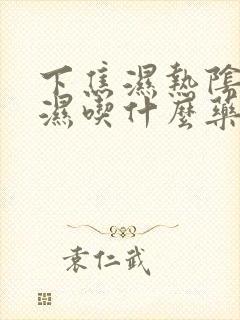 下焦濕熱陰
濕喫什麼藥
袁仁武